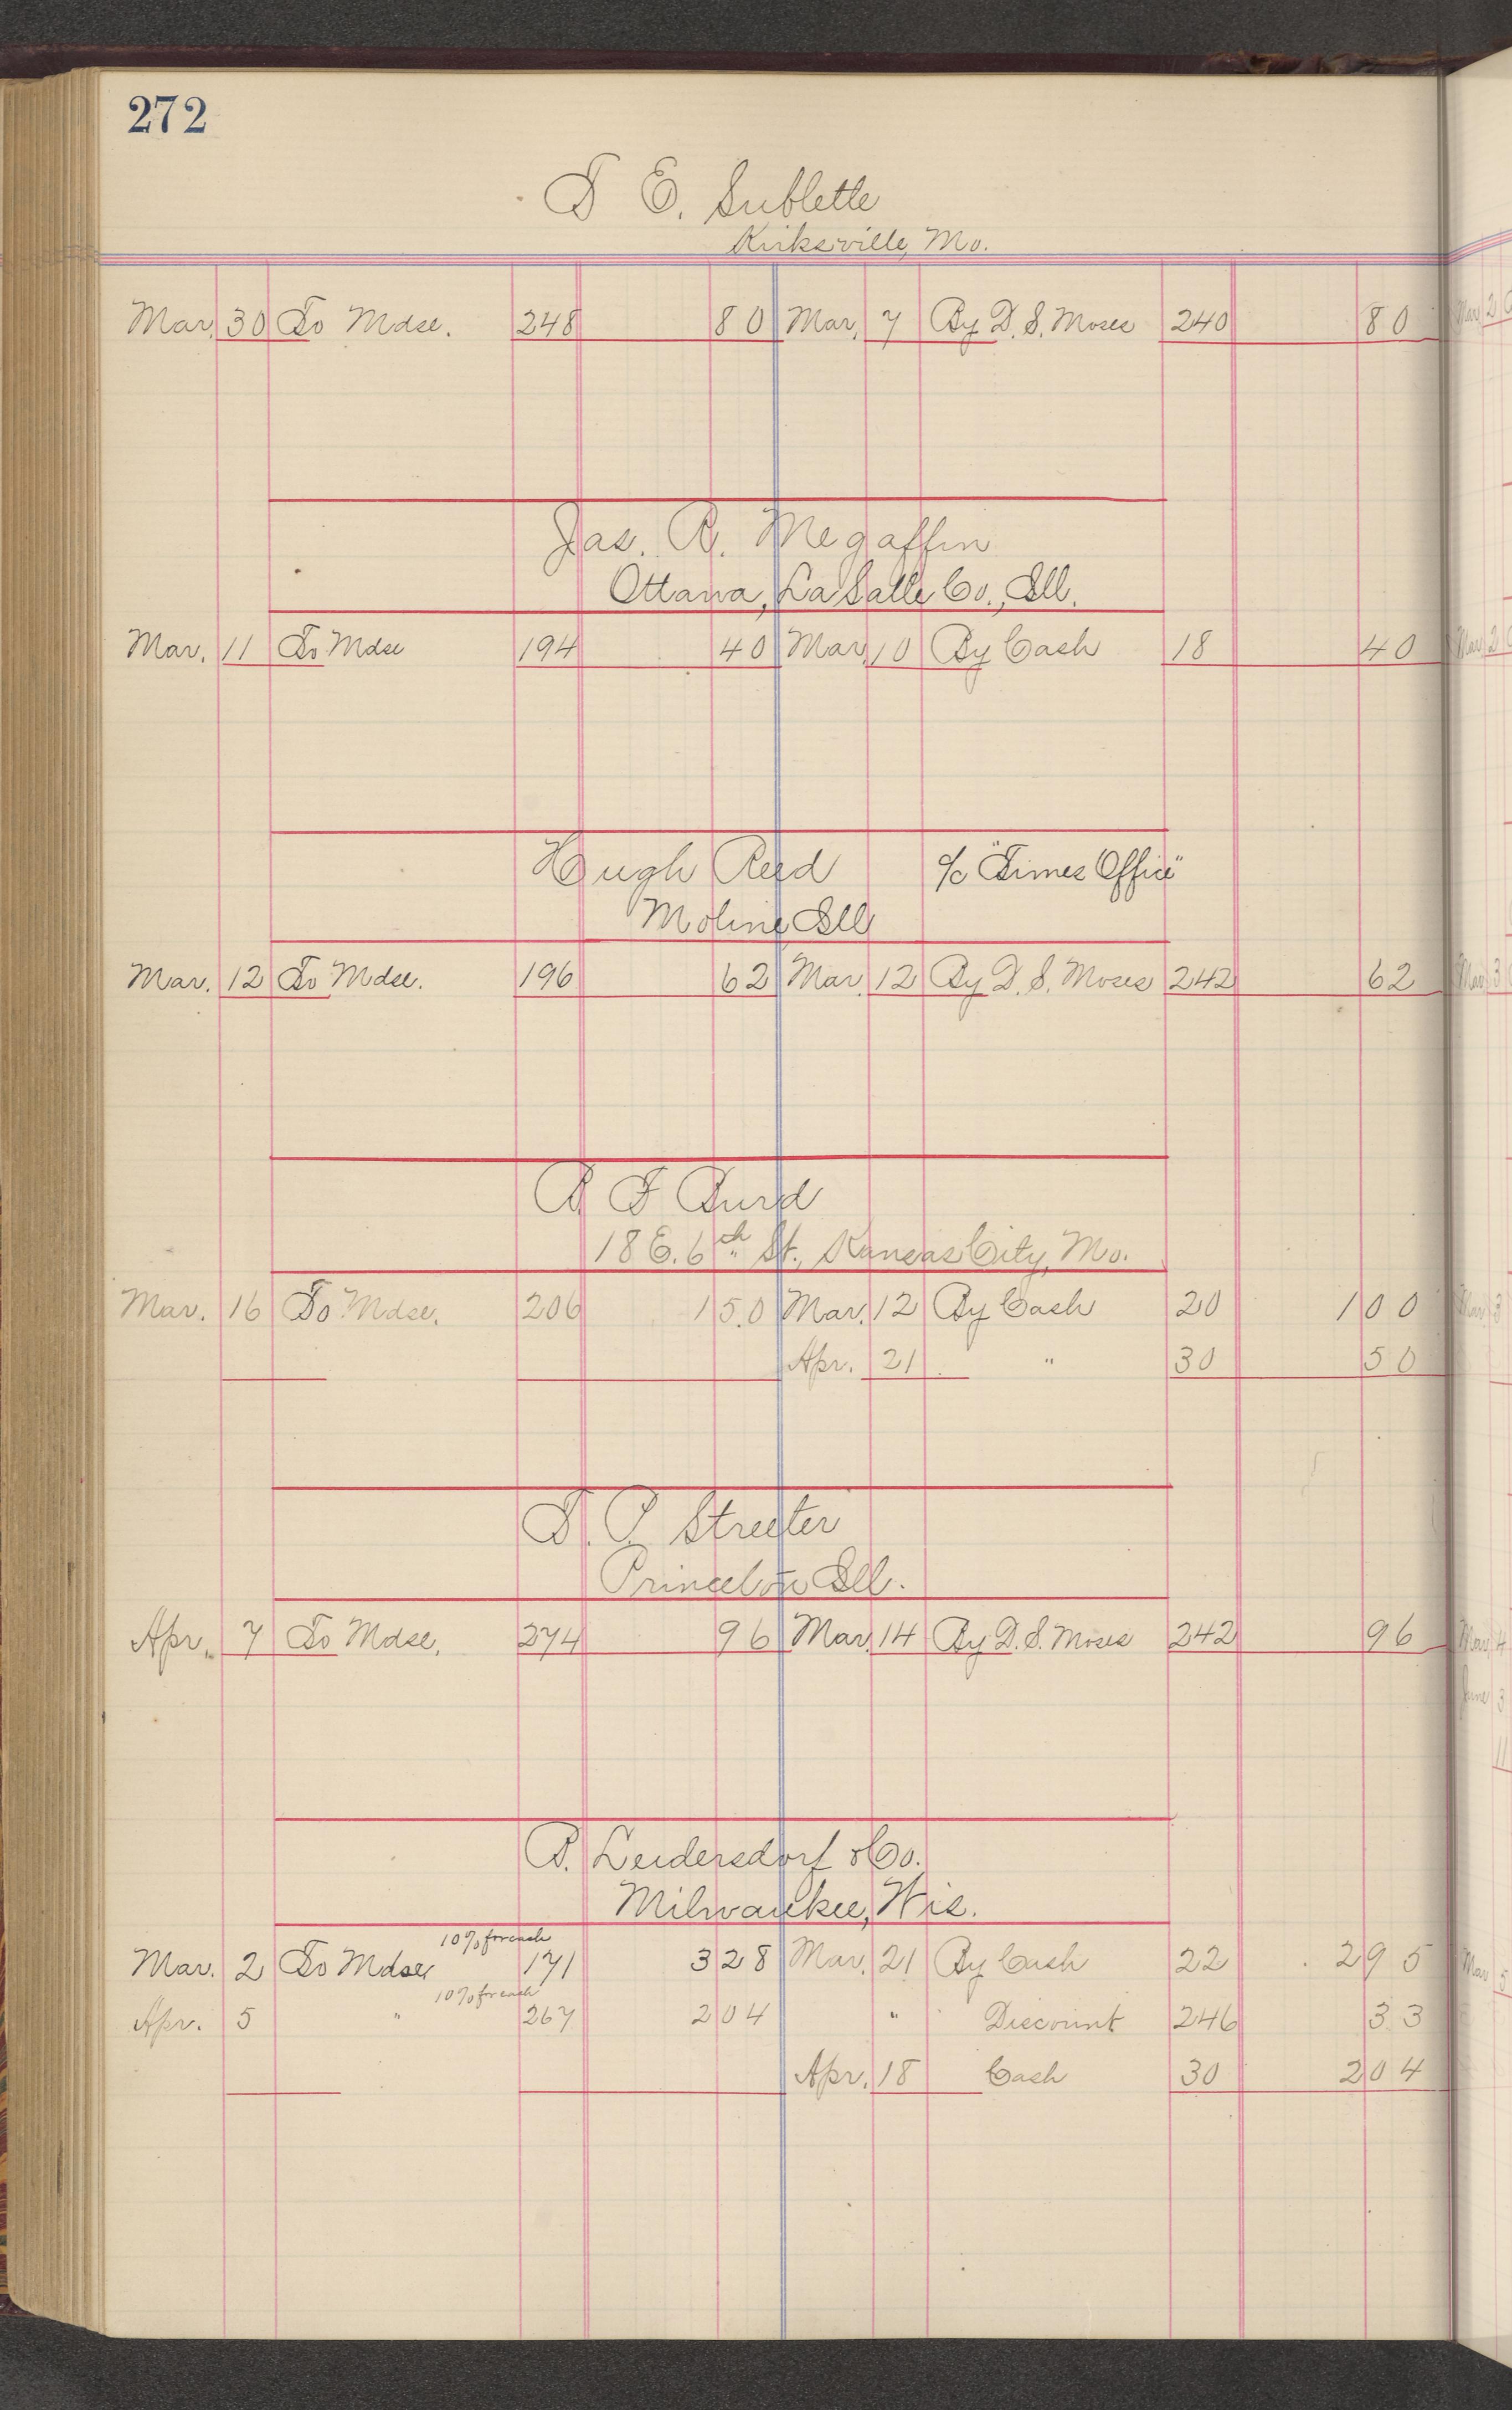 272
T E. Sublette
Kirksville, Mo.
Mar. 30 To Mdse. 248 80 Mar. 7 By D. S. Moses 240 80
Jas. R. Megaffin
Ottawa, La Salle Co., Ill.
Mar. 11 To Mdse 194 40 Mar. 10 By Cash 18 40
Hugh Reed c/o "Times Office"
Moline Ill
Mar. 12 To Mdse. 196 62 Mar. 12 By D. S. Moses 242 62
18 E. 6th St., Kansas City, Mo.
Mar. 16 To Mdse. 206 1 50 Mar. 12 By Cash 20 1 00
Apr. 21 " 30 50
T. P. Streeter
Princeton Ill.
Apr. 7 To Mdse. 274 96 Mar. 14 By D. S. Moses 242 96
B. Leidersdorf & Co.
Milwaukee, Wis.
10% for cash
Mar. 2 To Mdse. 171 3 28 Mar. 21 By Cash 22 2 95
10% for cash
Apr. 5 " 267 2 04 " Discount 246 33
Apr. 18 Cash 30 2 04